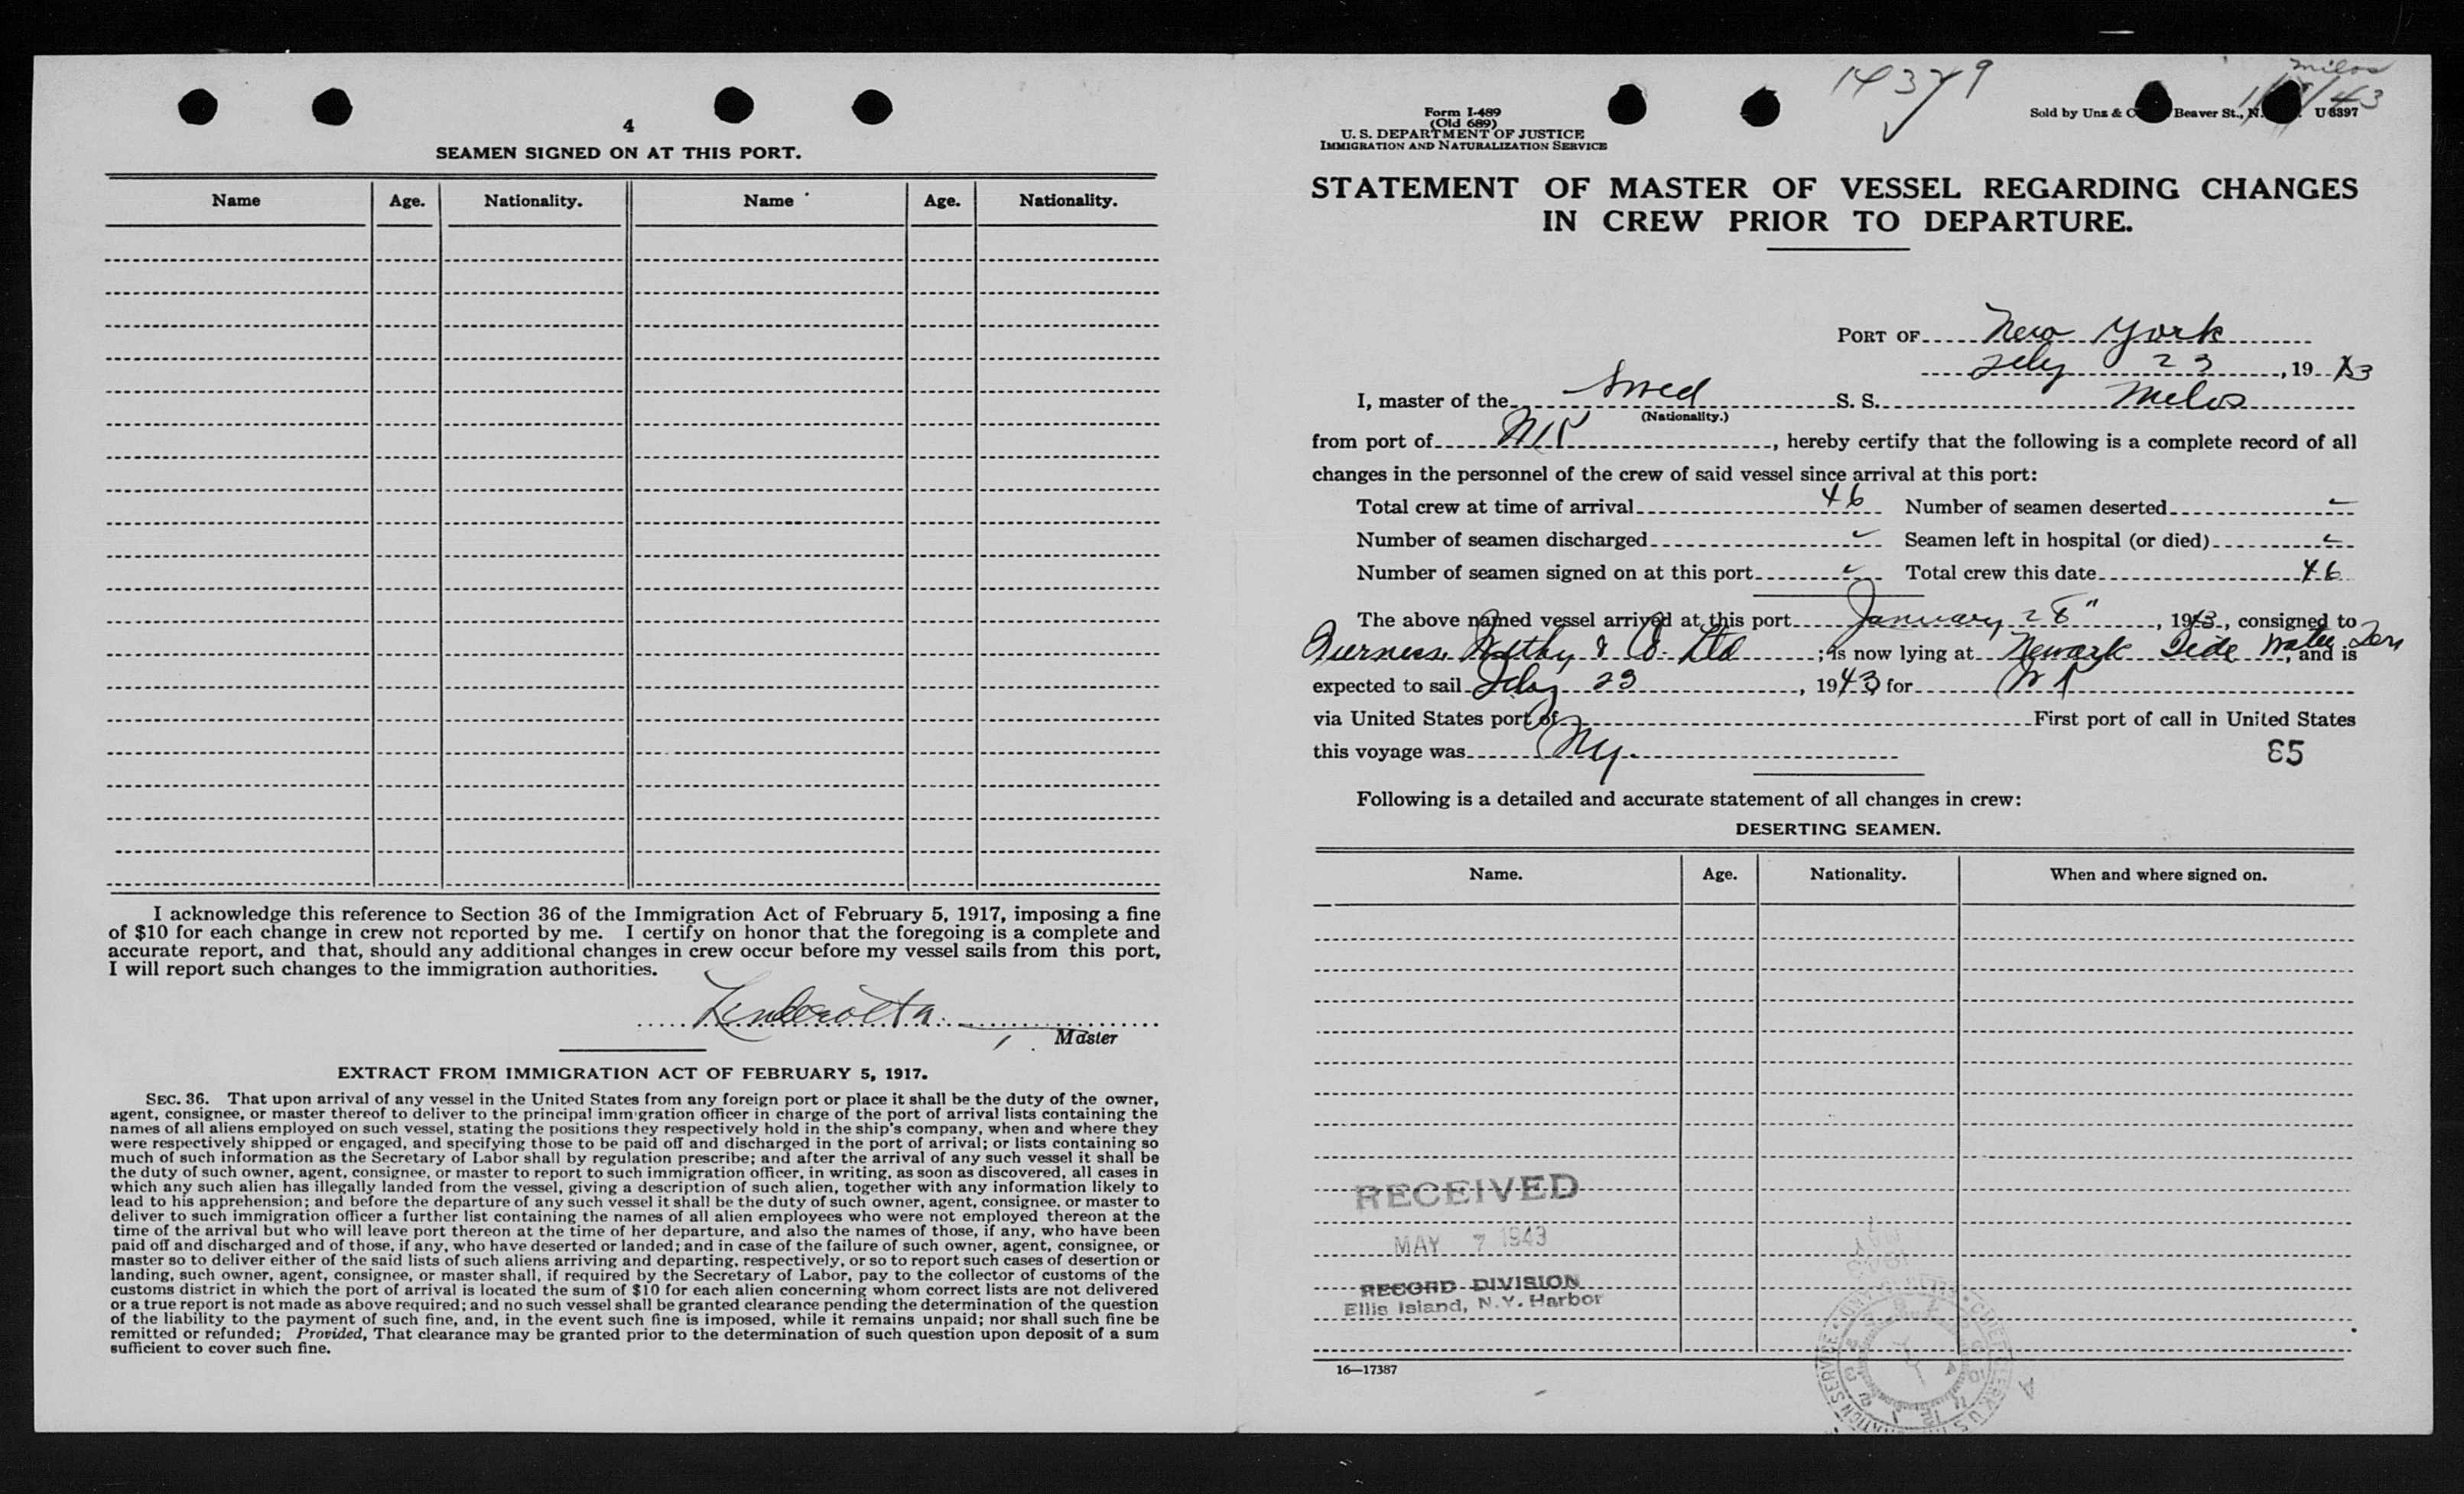 4
SEAMEN SIGNED ON AT THIS PORT.
Name Age. Nationality. Name Age. Nationality.
I acknowledge this reference to Section 36 of the Immigration Act of February 5, 1917, imposing a fine
of $10 for each change in crew not reported by me. I certify on honor that the foregoing is a complete and
accurate report, and that, should any additional changes in crew occur before my vessel sails from this port,
I will report such changes to the immigration authorities.
Master
EXTRACT FROM IMMIGRATION ACT OF FEBRUARY 5, 1917.
SEC. 36. That upon arrival of any vessel in the United States from any foreign port or place it shall be the duty of the owner,
agent, consignee, or master thereof to deliver to the principal immigration officer in charge of the port of arrival lists containing the
names of all aliens employed on such vessel, stating the positions they respectively hold in the ship's company, when and where they
were respectively shipped or engaged, and specifying those to be paid off and discharged in the port of arrival; or lists containing so
much of such information as the Secretary of Labor shall by regulation prescribe; and after the arrival of any such vessel it shall be
the duty of such owner, agent, consignee, or master to report to such immigration officer, in writing, as soon as discovered, all cases in
which any such alien has illegally landed from the vessel, giving a description of such alien, together with any information likely to
lead to his apprehension; and before the departure of any such vessel it shall be the duty of such owner, agent, consignee, or master to
deliver to such immigration officer a further list containing the names of all alien employees who were not employed thereon at the
time of the arrival but who will leave port thereon at the time of her departure, and also the names of those, if any, who have been
paid off and discharged and of those, if any, who have deserted or landed; and in case of the failure of such owner, agent, consignee, or
master so to deliver either of the said lists of such aliens arriving and departing, respectively, or so to report such cases of desertion or
landing, such owner, agent, consignee, or master shall, if required by the Secretary of Labor, pay to the collector of customs of the
customs district in which the port of arrival is located the sum of $10 for each alien concerning whom correct lists are not delivered
or a true report is not made as above required; and no such vessel shall be granted clearance pending the determination of the question
of the liability to the payment of such fine, and, in the event such fine is imposed, while it remains unpaid; nor shall such fine be
remitted or refunded; Provided, That clearance may be granted prior to the determination of such question upon deposit of a sum
sufficient to cover such fine.
14379
Milos
Form I-489
(Old 689)
U. S. DEPARTMENT OF JUSTICE
IMMIGRATION AND NATURALIZATION SERVICE
Sold by Unz & Beaver St., N. U 8397
STATEMENT OF MASTER OF VESSEL REGARDING CHANGES
IN CREW PRIOR TO DEPARTURE.
PORT OF New York
Feby 23, 1943
I, master of the Swed S. S. Milos
(Nationality.)
from port of , hereby certify that the following is a complete record of all
changes in the personnel of the crew of said vessel since arrival at this port:
Total crew at time of arrival 46 Number of seamen deserted
Number of seamen discharged Seamen left in hospital (or died)
Number of seamen signed on at this port Total crew this date 46
The above named vessel arrived at this port January 28", 1943, consigned to
Furness Withy & Co. Ltd ; is now lying at Newark Tide Water Ter, and is
expected to sail Feby 23, 1943 for
via United States port of First port of call in United States
this voyage was Ny.
85
Following is a detailed and accurate statement of all changes in crew:
DESERTING SEAMEN.
Name. Age. Nationality. When and where signed on.
RECEIVED
MAY 7 1943
RECORD DIVISION
Ellis Island, N.Y. Harbor
16—17387